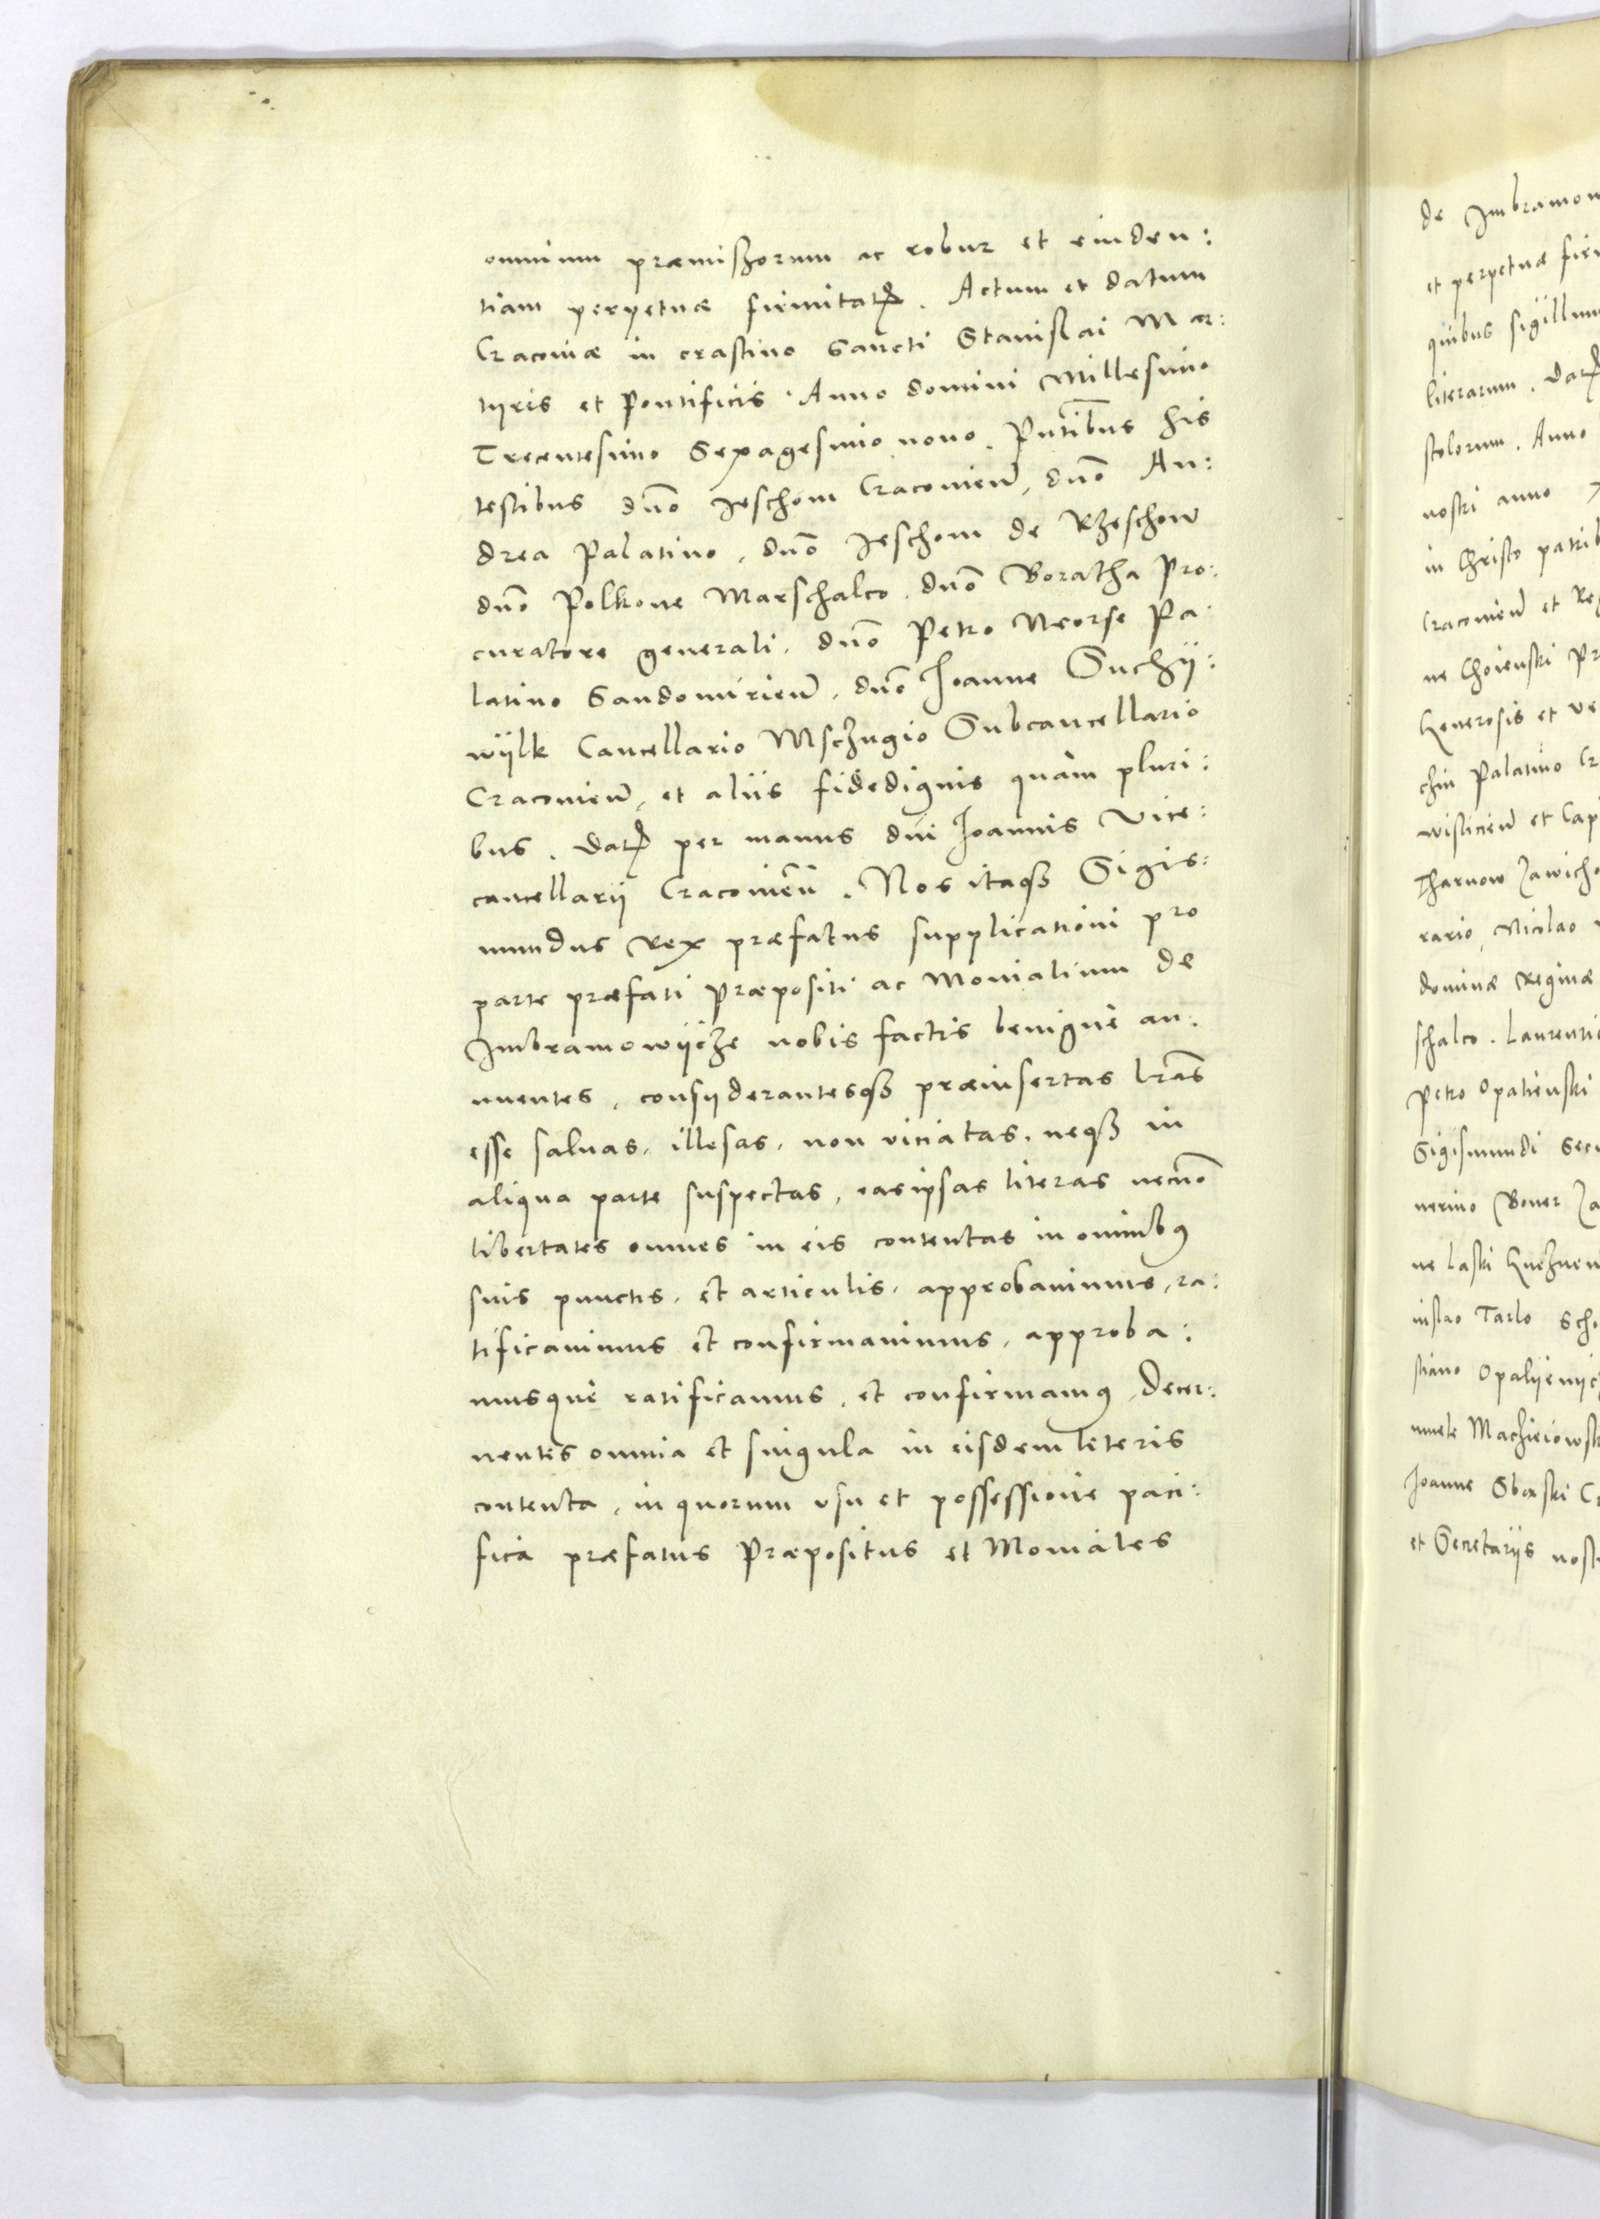 omnium præmissorum ac robur et euiden:
tiam perpetuæ firmitat. Actum et datum
Cracouiæ in crastino Sancti Stanislai Mar:
tyris et Pontificis. Anno domini Millesimo
Trecentesimo Sexagesimo nono. Pntibus his
testibus dno Ieschom Cracouien, dno An:
drea Palatino, dno Ieschom de Rzeschow
dno Polkone Marschalco, dno Boratha Pro:
curatore generali, dno Petro Neorse Pa:
latino Sandomirien, dno Joanne Suchy:
wylk Cancellario Msczugio Subcancellario
Cracouien, et aliis fidedignis quam pluri:
bus. Dat per manus dni Joannis Vice:
cancellarii Cracouien. Nos itaq Sigis:
mundus Rex præfatus supplicationi pro
parte præfati Præpositi ac Monialium de
Imbramowycze nobis factis benigne an:
nuentes, consyderantesq præinsertas lras
esse saluas, illesas, non viciatas, neq in
aliqua parte suspectas, easipsas literas necno
libertates omnes in eis contentas in omnibus
suis punctis, et articulis, approbauimus, ra:
tificauimus et confirmauimus, approba:
musque ratificamus, et confirmamus, Decer:
nentes omnia et singula in eisdem leteris
contenta, in quorum vsu et possessione paci:
fica præfatus Præpositus et Moniales
de
et perpetuæ
quibus
literarum. Dat
stolorum. Anno
nostri anno
in Christo
Cracouien et
ne Choienski
Generosis et
chin Palatino
wislicien et
Tharnow
rario, Nicolao
dominæ Reginæ
schalco.
Petro Opalienski
Sigismundi
nerino Boner
ne Laski
Tarlo
Joanne
et Secretariis